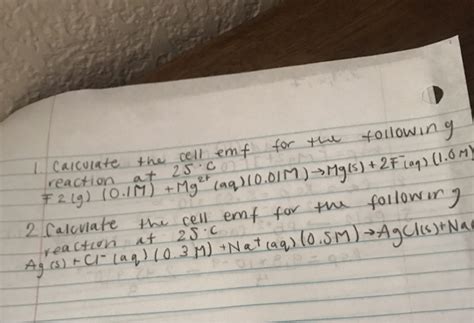 1. Calculate the cell emf for the following
reaction at 25°C
F2(g) (0.1M) + Mg²⁺(aq)(0.01M)→Mg(s)+2F⁻(aq)(1.0M)
2. Calculate the cell emf for the following
reaction at 25°C
Ag(s)+Cl⁻(aq)(0.3M)+Na⁺(aq)(0.5M)→AgCl(s)+Na